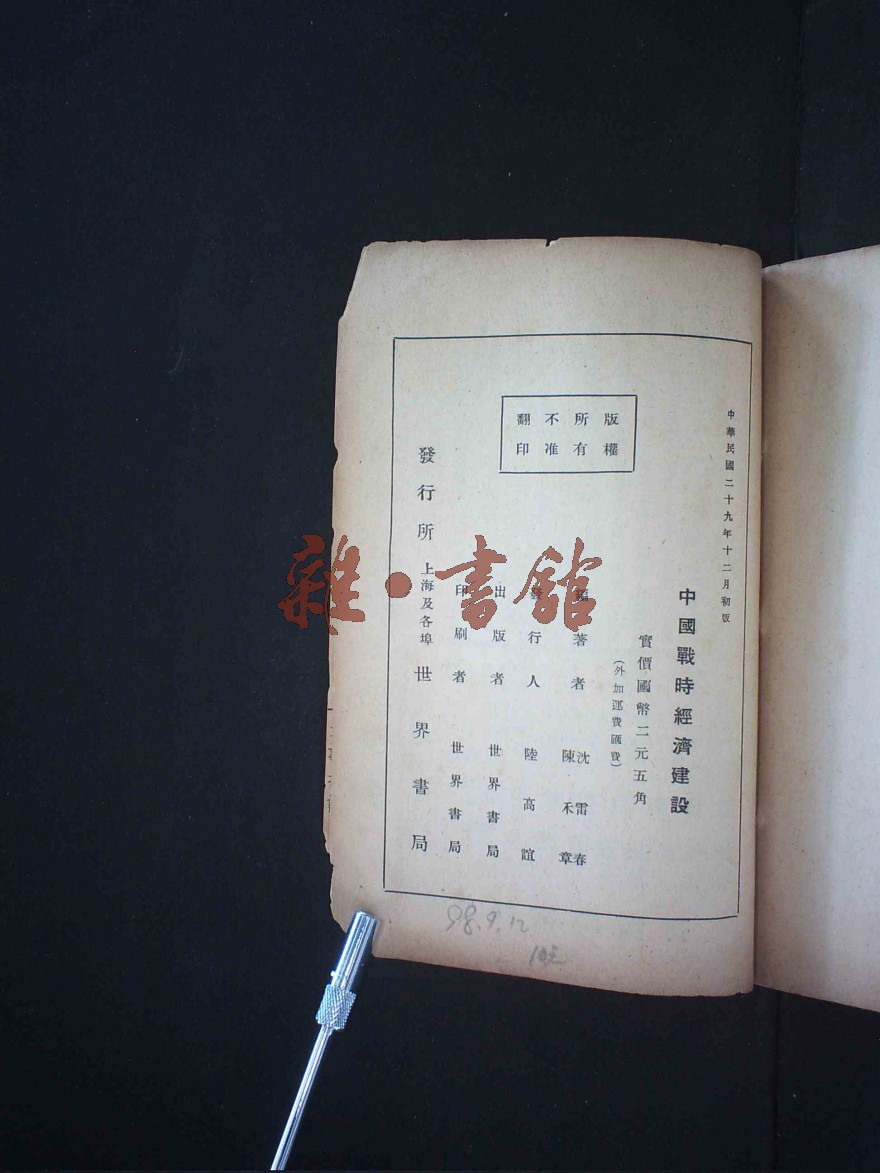 中華民國二十九年十二月初版
中國戰時經濟建設
實價國幣二元五角
(外加運費匯費)
版權所有不准翻印
編著者 沈雷春
陳禾章
發行人 陸高誼
出版者 世界書局
印刷者 世界書局
發行所 上海及各埠 世界書局
98.9.12
10元
雜·書館